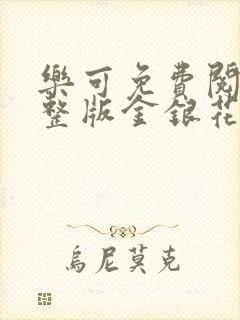 樂可免費閱
整版金銀花
烏尼莫克